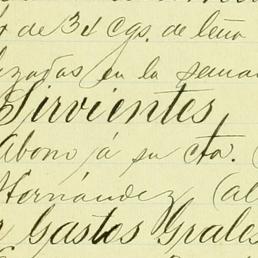 de 34 cgs. de leña
izadas en la seman
Sirvientes
Abono á su cta. (
Hernández (al
Gastos Grales